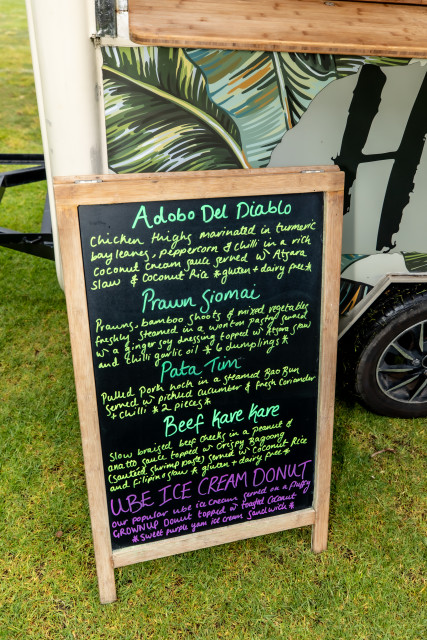 Adobo Del Diablo
Chicken thighs marinated in turmeric
bay leaves, peppercorn & chilli in a rich
coconut cream sauce served w/ Atsara
slaw & Coconut Rice *gluten + dairy free*
Prawn Siomai
Prawns, bamboo shoots & mixed vegetables
freshly steamed in a wonton pastry served
w/ a ginger soy dressing topped w/ Atsara slaw
and chilli garlic oil * 6 dumplings *
Pata Tim
Pulled Pork hock in a steamed Bao Bun
served w/ pickled cucumber & fresh Coriander
+ chilli * 2 pieces *
Beef Kare Kare
Slow braised beef cheeks in a peanut &
anatto sauce topped w/ Crispy Bagoong
(sauteed shrimp paste) served w/ Coconut Rice
and filipino slaw * gluten + dairy free *
UBE ICE CREAM DONUT
our popular ube ice cream served on a fluffy
GROWNUP Donut topped w/ toasted Coconut
*Sweet purple yam ice cream sandwich*
H